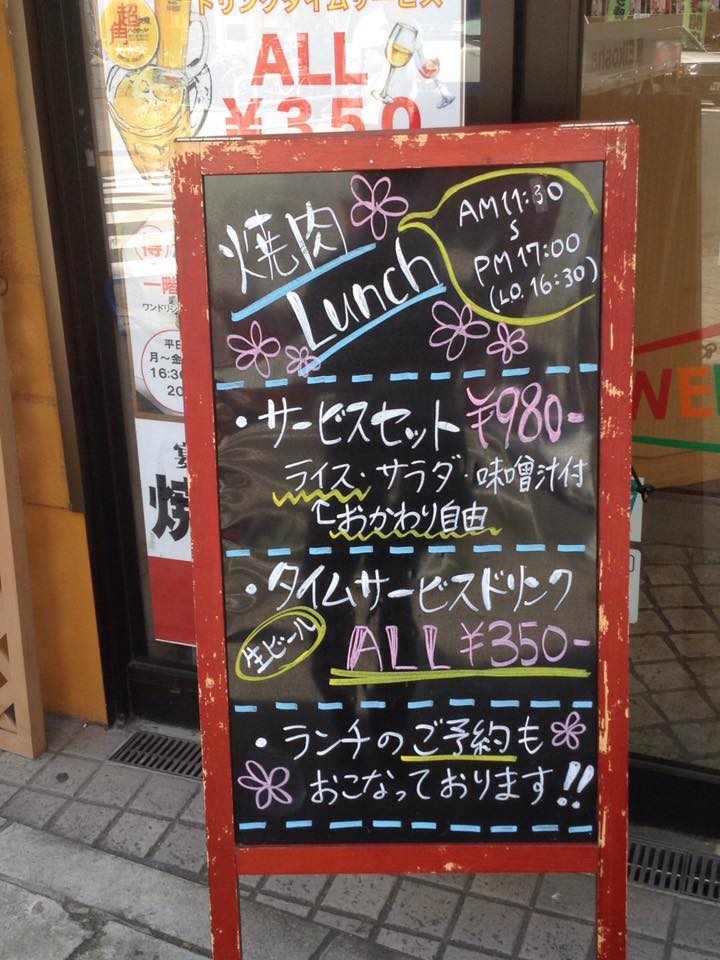 ドリンクタイムサービス
ALL
¥350
超
角
一階
ワンドリン
平日
月～金
16:30
20
焼
Eikosha
WE
焼肉
Lunch
AM11:30
PM17:00
(L.O. 16:30)
・サービスセット ¥980-
ライス・サラダ・味噌汁付
おかわり自由
・タイムサービスドリンク
生ビール
ALL ¥350-
・ランチのご予約も
おこなっております!!